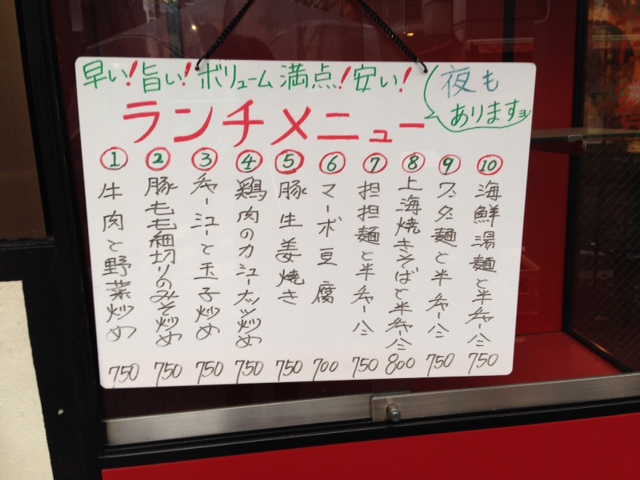 早い!旨い!ボリューム満点!安い!
夜も
ありますョ
ランチメニュー
① 牛肉と野菜炒め 750
② 豚もも細切りのみそ炒め 750
③ チャーシューと玉子炒め 750
④ 鶏肉のカシューナッツ炒め 750
⑤ 豚生姜焼き 750
⑥ マーボ豆腐 700
⑦ 担担麺と半チャーハン 750
⑧ 上海焼きそばと半チャーハン 800
⑨ ワンタン麺と半チャーハン 750
⑩ 海鮮湯麺と半チャーハン 750